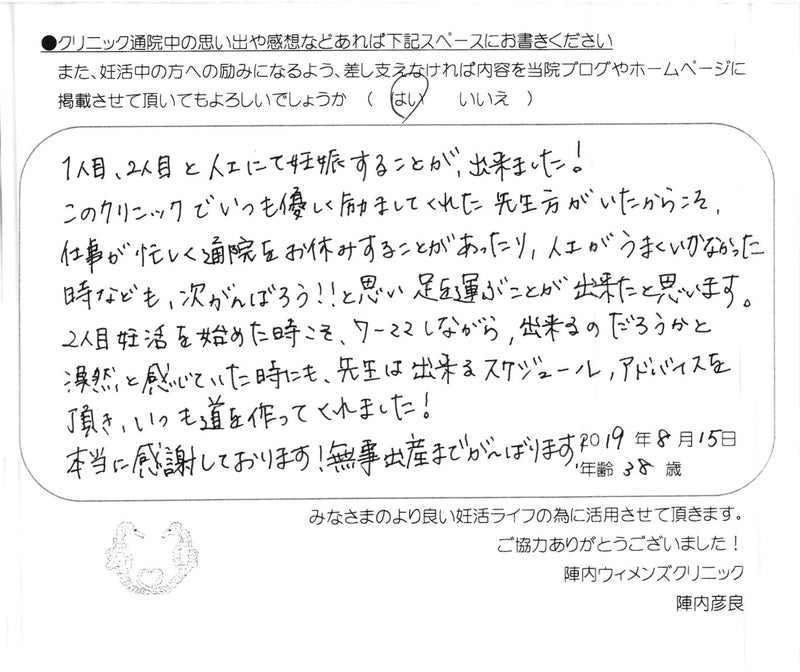 ●クリニック通院中の思い出や感想などあれば下記スペースにお書きください
また、妊活中の方への励みになるよう、差し支えなければ内容を当院ブログやホームページに
掲載させて頂いてもよろしいでしょうか （ はい いいえ ）
1人目、2人目と人工にて妊娠することが、出来ました！
このクリニックでいつも優しく励ましてくれた先生方がいたからこそ、
仕事が忙しく通院をお休みすることがあったり、人工がうまくいかなかった
時なども、次がんばろう!!と思い足を運ぶことが出来たと思います。
2人目妊活を始めた時こそ、ワーママしながら、出来るのだろうかと
漠然と感じていた時にも、先生は出来るスケジュール，アドバイスを
頂き、いつも道を作ってくれました！
本当に感謝しております！無事出産までがんばります。
2019年8月15日
年齢 38 歳
みなさまのより良い妊活ライフの為に活用させて頂きます。
ご協力ありがとうございました！
陣内ウィメンズクリニック
陣内彦良